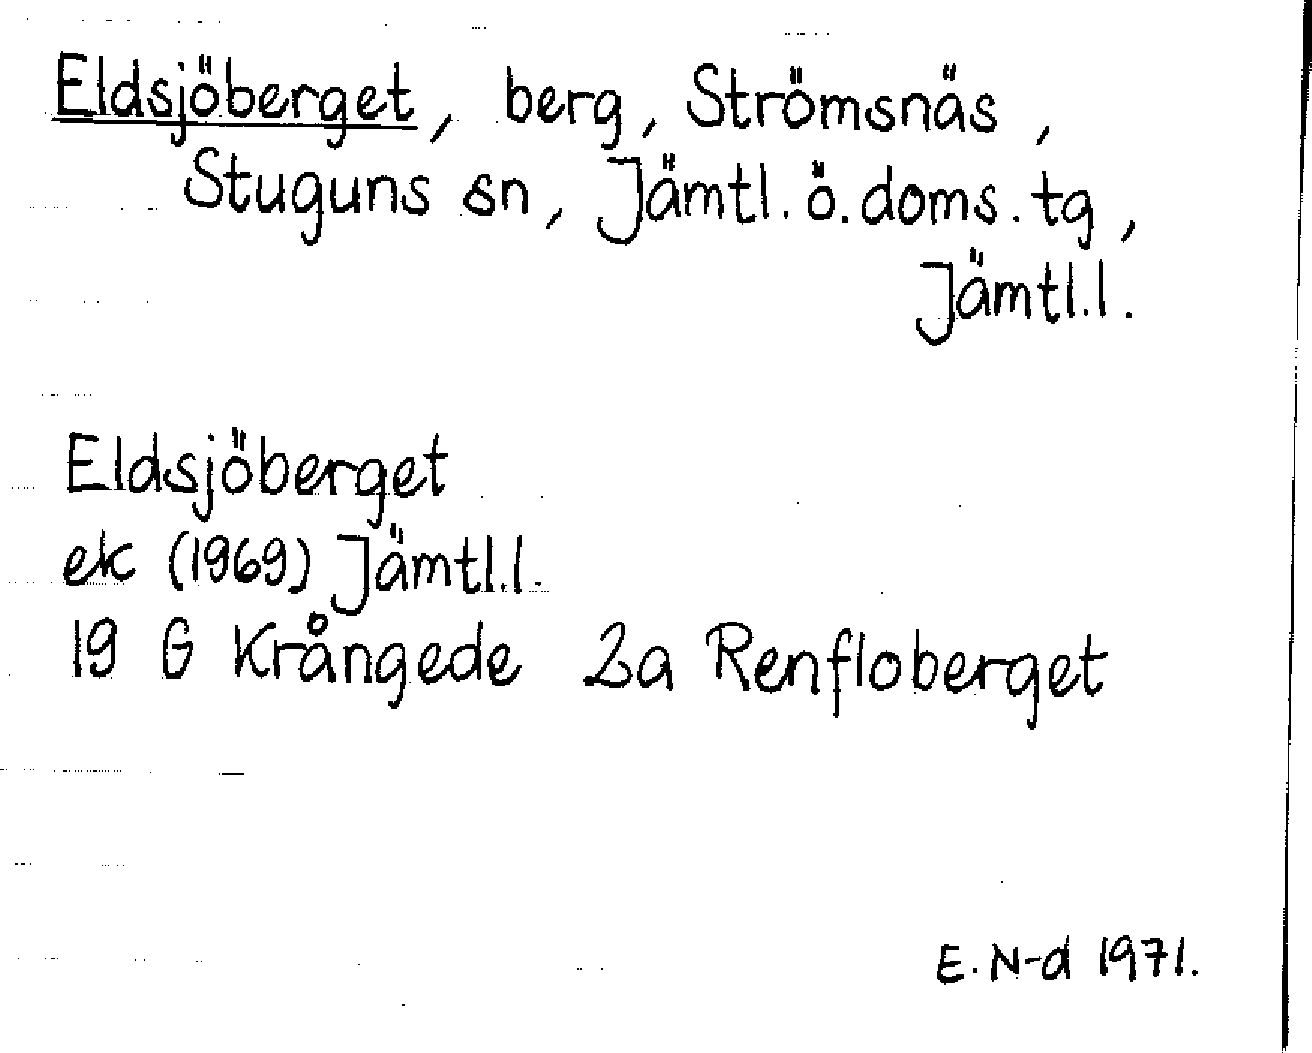 Eldsjöberget, berg, Strömsnäs,
Stuguns sn, Jämtl. ö. doms. tg,
Jämtl. l.
Eldsjöberget
ek (1969) Jämtl. l.
19 G Krångede 2a Renfloberget
E. N-d 1971.